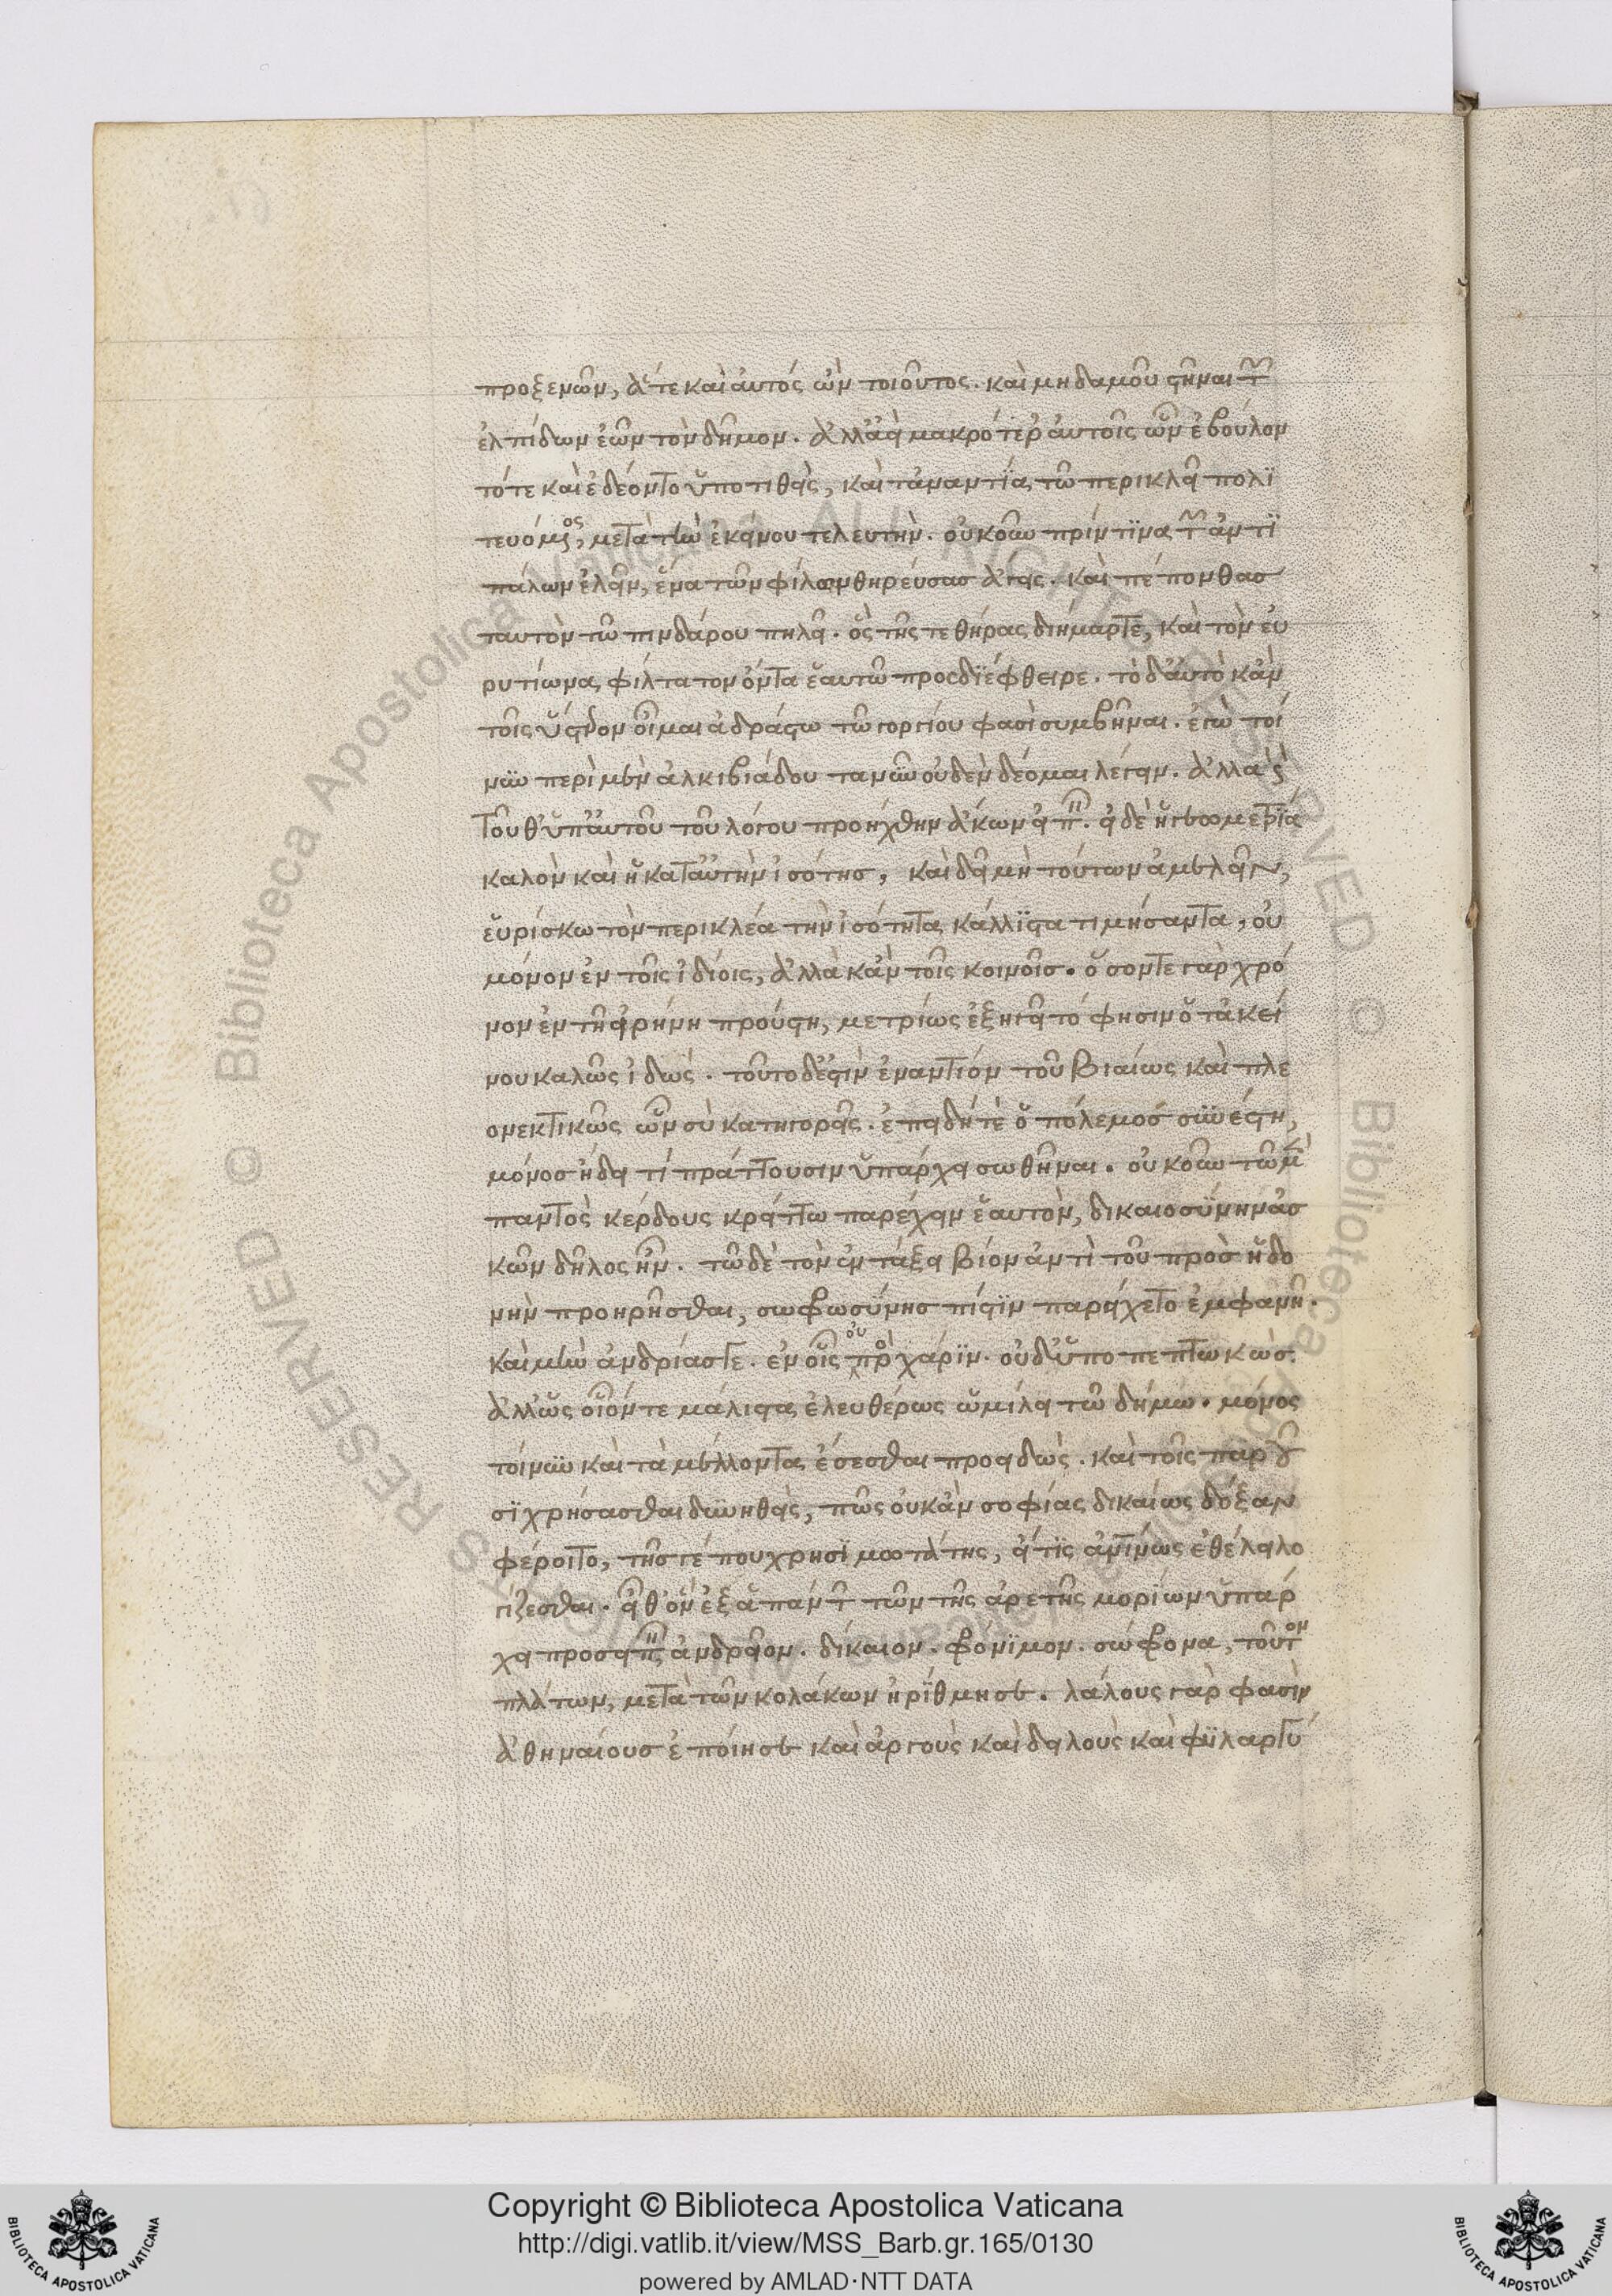 προξενῶν, ἅτε καὶ αὐτός ὢν τοιοῦτος. καὶ μηδαμοῦ στῆναι τῶν
ἐλπίδων ἐῶν τὸν δῆμον. ἀλλ᾽ ἀεὶ μακρότερ᾽ αὐτοῖς ὧν ἐβούλον
τότε καὶ ἐδέοντο ὑποτιθείς, καὶ τἀναντία τῶ περικλεῖ πολι
τευόμενος, μετὰ τὴν ἐκείνου τελευτήν. οὐκοῦν πρίν τινα τῶν ἀντι
πάλων ἑλεῖν, ἕνα τῶν φίλων θηρεύσας ἄγεις. καὶ πέπονθας
ταυτὸν τῶ πινδάρου πηλεῖ. ὃς τῆς τε θήρας διήμαρτε, καὶ τὸν εὐ
ρυτίωνα φίλτατον ὄντα ἑαυτῶ προσδιέφθειρε. τὸ δ᾽ αὐτὸ κἀν
τοῖς ὕστερον οἶμαι ἀδράστω τῶ γοργίου φασὶ συμβῆναι. ἐγὼ τοί
νυν περὶ μὲν ἀλκιβιάδου τανῦν οὐδὲν δέομαι λέγειν. ἀλλὰ καὶ
τοῦθ᾽ ὑπ᾽ αὐτοῦ τοῦ λόγου προήχθην ἄκων εἰπεῖν. εἰ δὲ ἡ γεωμετρία
καλὸν καὶ ἡ κατ᾽ αὐτὴν ἰσότης, καὶ δεῖ μὴ τούτων ἀμελεῖν,
εὑρίσκω τὸν περικλέα τὴν ἰσότητα κάλλιστα τιμήσαντα, οὐ
μόνον ἐν τοῖς ἰδίοις, ἀλλὰ κἀν τοῖς κοινοῖς. ὅσον τε γὰρ χρό
νον ἐν τῆ εἰρήνη προύστη, μετρίως ἐξηγεῖτό φησιν ὁ τἀκεί
νου καλῶς εἰδώς. τοῦτο δ᾽ ἐστὶν ἐναντίον τοῦ βιαίως καὶ πλε
ονεκτικῶς ὧν σὺ κατηγορεῖς. ἐπειδή τε ὁ πόλεμος συνέστη,
μόνος ἤδει τί πράττουσιν ὑπάρχει σωθῆναι. οὐκοῦν τῶ μὲν
παντὸς κέρδους κρείττω παρέχειν ἑαυτὸν, δικαιοσύνην ἀσ
κῶν δῆλος ἦν. τῶ δὲ τὸν ἐν τάξει βίον ἀντὶ τοῦ πρὸς ἡδο
νὴν προηρῆσθαι, σωφροσύνης πίστιν παρείχετο ἐμφανῆ.
καὶ μὴν ἀνδρίας γε. ἐν οἷς οὐ πρὸς χάριν. οὐδ᾽ ὑποπεπτωκὼς.
ἀλλ᾽ ὡς οἷόν τε μάλιστα ἐλευθέρως ὡμίλει τῶ δήμω. μόνος
τοίνυν καὶ τὰ μέλλοντα ἔσεσθαι προειδὼς. καὶ τοῖς παροῦ
σι χρήσασθαι δυνηθεὶς, πῶς οὐκ ἂν σοφίας δικαίως δόξαν
φέροιτο, τῆς γέ που χρησιμωτάτης, εἴ τις ἀντίνως ἐθέλει λο
γίζεσθαι. εἶθ᾽ ὃν ἐξ ἁπάντων τῶν τῆς ἀρετῆς μορίων ὑπάρ
χει προσειπεῖν, ἀνδρεῖον. δίκαιον. φρόνιμον. σώφρονα, τοῦτον
πλάτων, μετὰ τῶν κολάκων ἠρίθμησε. λάλους γὰρ φασὶν
ἀθηναίους ἐποίησε καὶ ἀργοὺς καὶ δειλοὺς καὶ φιλαργύ
Copyright © Biblioteca Apostolica Vaticana
http://digi.vatlib.it/view/MSS_Barb.gr.165/0130
powered by AMLAD·NTT DATA